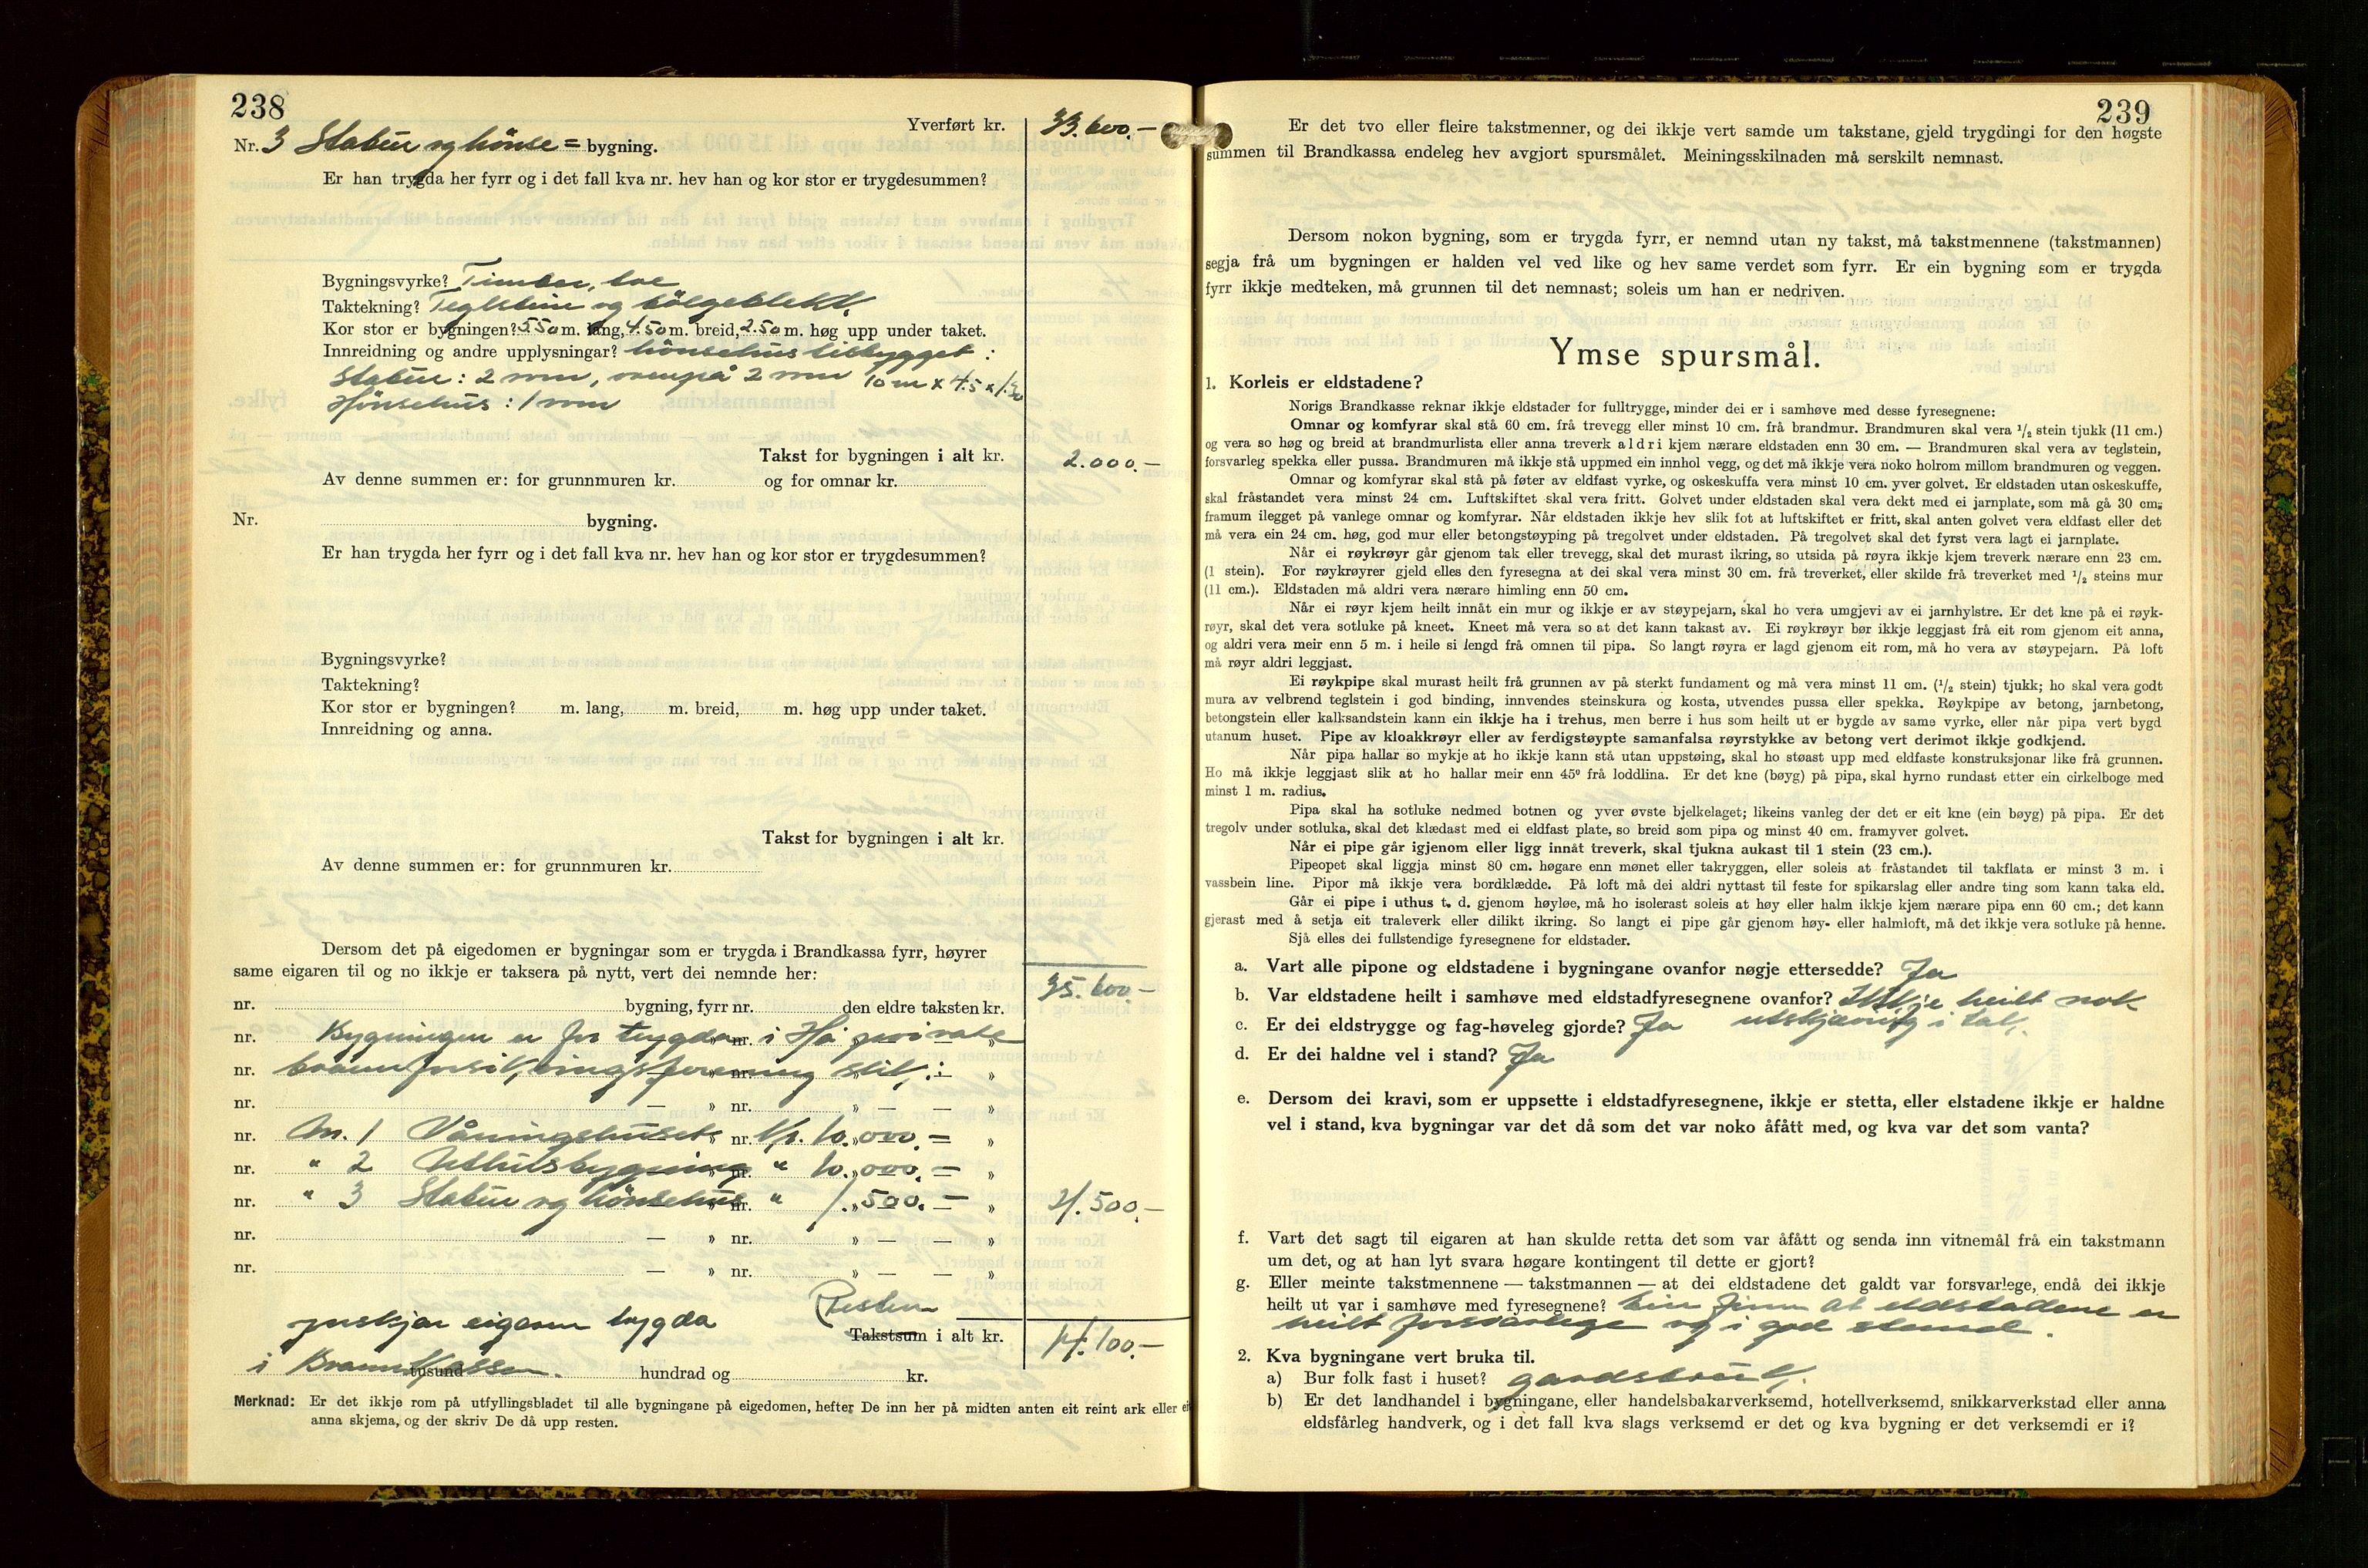 238
Yverført kr. 33.600.-
Nr. 3 Stabur og hönse = bygning.
Er han trygda her fyrr og i det fall kva nr. hev han og kor stor er trygdesummen?
Bygningsvyrke? Timber,
Taktekning? Teglstein og bölgeblekk.
Kor stor er bygningen? 5.50 m. lang, 4.50 m. breid, 2.50 m. høg upp under taket.
Innreidning og andre upplysningar? hönsehus tilbygget :
Stabur : 2 rom, ovenpå 2 rom 10 m x 4.5 x
Hönsehus : 1 rom
Takst for bygningen i alt kr. 2.000.-
Av denne summen er: for grunnmuren kr. og for omnar kr.
Nr. bygning.
Er han trygda her fyrr og i det fall kva nr. hev han og kor stor er trygdesummen?
Bygningsvyrke?
Taktekning?
Kor stor er bygningen? m. lang, m. breid, m. høg upp under taket.
Innreidning og anna.
Takst for bygningen i alt kr.
Av denne summen er: for grunnmuren kr.
Dersom det på eigedomen er bygningar som er trygda i Brandkassa fyrr, høyrer
same eigaren til og no ikkje er taksera på nytt, vert dei nemnde her:
35.600.-
nr. bygning, fyrr nr. den eldre taksten kr.
nr. Bygningen er for trygda nr. i Hå private
nr. brannforsikringsforening slik : »
nr. — » nr. » — — »
nr. Nr. 1 Våningshuset » nr. Kr. 10.000.- »
nr. " 2 Uthusbygning nr. " 10.000.- »
nr. " 3 Stabur og hönsehus nr. " 1.500.- » 21.500.-
nr. — » nr. » — — »
nr. — » nr. » — — »
Resten
ynskjer eigaren trygda
Takstsum i alt kr. 14.100.-
i Brannkassen. tusund hundrad og kr.
Merknad: Er det ikkje rom på utfyllingsbladet til alle bygningane på eigedomen, hefter De inn her på midten anten eit reint ark eller ei
anna skjema, og der skriv De då upp resten.
239
Er det tvo eller fleire takstmenner, og dei ikkje vert samde um takstane, gjeld trygdingi for den høgste
summen til Brandkassa endeleg hev avgjort spursmålet. Meiningsskilnaden må serskilt nemnast.
Dersom nokon bygning, som er trygda fyrr, er nemnd utan ny takst, må takstmennene (takstmannen)
segja frå um bygningen er halden vel ved like og hev same verdet som fyrr. Er ein bygning som er trygda
fyrr ikkje medteken, må grunnen til det nemnast; soleis um han er nedriven.
Ymse spursmål.
1. Korleis er eldstadene?
Norigs Brandkasse reknar ikkje eldstader for fulltrygge, minder dei er i samhøve med desse fyresegnene:
Omnar og komfyrar skal stå 60 cm. frå trevegg eller minst 10 cm. frå brandmur. Brandmuren skal vera ½ stein tjukk (11 cm.)
og vera so høg og breid at brandmurlista eller anna treverk aldri kjem nærare eldstaden enn 30 cm. — Brandmuren skal vera av teglstein,
forsvarleg spekka eller pussa. Brandmuren må ikkje stå uppmed ein innhol vegg, og det må ikkje vera noko holrom millom brandmuren og veggen.
Omnar og komfyrar skal stå på føter av eldfast vyrke, og oskeskuffa vera minst 10 cm. yver golvet. Er eldstaden utan oskeskuffe,
skal fråstandet vera minst 24 cm. Luftskiftet skal vera fritt. Golvet under eldstaden skal vera dekt med ei jarnplate, som må gå 30 cm.
framum ilegget på vanlege omnar og komfyrar. Når eldstaden ikkje hev slik fot at luftskiftet er fritt, skal anten golvet vera eldfast eller det
må vera ein 24 cm. høg, god mur eller betongstøyping på tregolvet under eldstaden. På tregolvet skal det fyrst vera lagt ei jarnplate.
Når ei røykrøyr går gjenom tak eller trevegg, skal det murast ikring, so utsida på røyra ikkje kjem treverk nærare enn 23 cm.
(1 stein). For røykrøyrer gjeld elles den fyresegna at dei skal vera minst 30 cm. frå treverket, eller skilde frå treverket med ½ steins mur
(11 cm.). Eldstaden må aldri vera nærare himling enn 50 cm.
Når ei røyr kjem heilt innåt ein mur og ikkje er av støypejarn, skal ho vera umgjevi av ei jarnhylstre. Er det kne på ei røyk-
røyr, skal det vera sotluke på kneet. Kneet må vera so at det kann takast av. Ei røykrøyr bør ikkje leggjast frå eit rom gjenom eit anna,
og aldri vera meir enn 5 m. i heile si lengd frå omnen til pipa. So langt røyra er lagd gjenom eit rom, må ho vera av støypejarn. På loft
må røyr aldri leggjast.
Ei røykpipe skal murast heilt frå grunnen av på sterkt fundament og må vera minst 11 cm. (½ stein) tjukk; ho skal vera godt
mura av velbrend teglstein i god binding, innvendes steinskura og kosta, utvendes pussa eller spekka. Røykpipe av betong, jarnbetong,
betongstein eller kalksandstein kann ein ikkje ha i trehus, men berre i hus som heilt ut er bygde av same vyrke, eller når pipa vert bygd
utanum huset. Pipe av kloakkrøyr eller av ferdigstøypte samanfalsa røyrstykke av betong vert derimot ikkje godkjend.
Når pipa hallar so mykje at ho ikkje kann stå utan uppstøing, skal ho støast upp med eldfaste konstruksjonar like frå grunnen.
Ho må ikkje leggjast slik at ho hallar meir enn 45° frå loddlina. Er det kne (bøyg) på pipa, skal hyrno rundast etter ein cirkelboge med
minst 1 m. radius.
Pipa skal ha sotluke nedmed botnen og yver øvste bjelkelaget; likeins vanleg der det er eit kne (ein bøyg) på pipa. Er det
tregolv under sotluka, skal det klædast med ei eldfast plate, so breid som pipa og minst 40 cm. framyver golvet.
Når ei pipe går igjenom eller ligg innåt treverk, skal tjukna aukast til 1 stein (23 cm.).
Pipeopet skal liggja minst 80 cm. høgare enn mønet eller takryggen, eller soleis at fråstandet til takflata er minst 3 m. i
vassbein line. Pipor må ikkje vera bordklædde. På loft må dei aldri nyttast til feste for spikarslag eller andre ting som kann taka eld.
Går ei pipe i uthus t. d. gjenom høyløe, må ho isolerast soleis at høy eller halm ikkje kjem nærare pipa enn 60 cm.; det kann
gjerast med å setja eit traleverk eller dilikt ikring. So langt ei pipe går gjenom høy- eller halmloft, må det ikkje vera sotluke på henne.
Sjå elles dei fullstendige fyresegnene for eldstader.
a. Vart alle pipone og eldstadene i bygningane ovanfor nøgje ettersedde? Ja
b. Var eldstadene heilt i samhøve med eldstadfyresegnene ovanfor? Ikkje heilt nok
c. Er dei eldstrygge og fag-høveleg gjorde? Ja utskjæring i tak.
d. Er dei haldne vel i stand? Ja
e. Dersom dei kravi, som er uppsette i eldstadfyresegnene, ikkje er stetta, eller elstadene ikkje er haldne
vel i stand, kva bygningar var det då som det var noko åfått med, og kva var det som vanta?
f. Vart det sagt til eigaren at han skulde retta det som var åfått og senda inn vitnemål frå ein takstmann
um det, og at han lyt svara høgare kontingent til dette er gjort?
g. Eller meinte takstmennene — takstmannen — at dei eldstadene det galdt var forsvarlege, endå dei ikkje
heilt ut var i samhøve med fyresegnene? Ein finn at eldstadene er
heilt forsvarlege og i god stand.
2. Kva bygningane vert bruka til.
a) Bur folk fast i huset? gardsbruk.
b) Er det landhandel i bygningane, eller handelsbakarverksemd, hotellverksemd, snikkarverkstad eller anna
eldsfårleg handverk, og i det fall kva slags verksemd er det og kva bygning er det verksemdi er i?